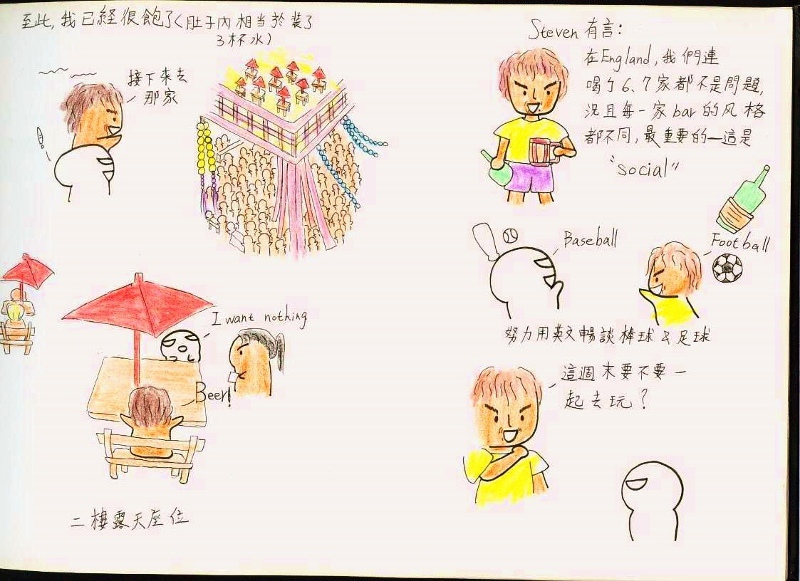 至此,我已経很飽了(肚子內相当於裝了
3杯水)
接下來去
那家
I want nothing
Beer!
二樓露天座位
Steven 有言:
在England,我們連
喝个6、7家都不是問題,
況且每一家bar的风格
都不同,最重要的一這是
"social"
Baseball
Football
努力用英文暢談棒球&足球
這週末要不要一
起去玩?